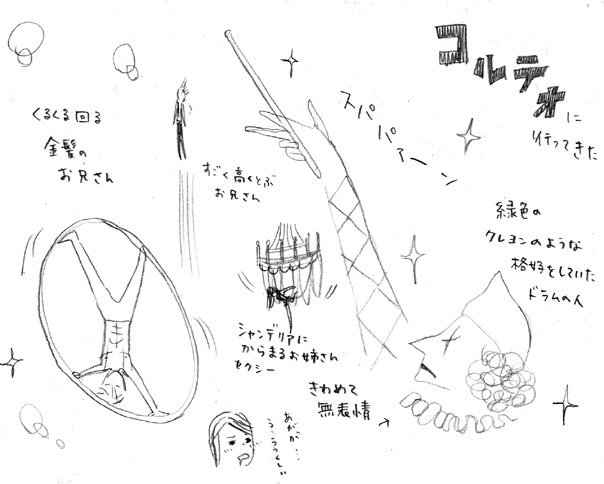 コルテオに
行ってきた
くるくる回る
金髪の
お兄さん
すごく高くとぶ
お兄さん
スパパァーン
緑色の
クレヨンのような
格好をしていた
ドラムの人
シャンデリアに
からまるお姉さん
セクシー
きわめて
無表情
あがが…
う…うつくしい